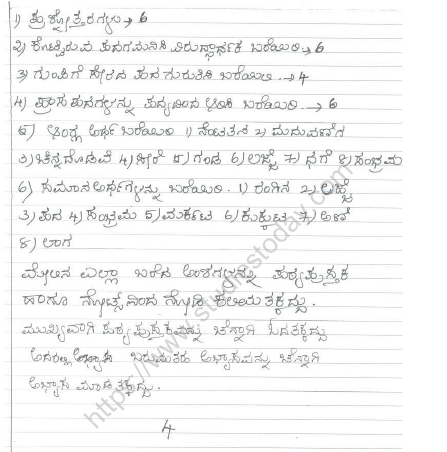 ೧) ಪ್ರಶ್ನೋತ್ತರಗಳು → 6
೨) ಕೊಟ್ಟಿರುವ ಪದಗಮನಿಸಿ ವಿರುದ್ಧಾರ್ಥಕ ಬರೆಯಿರಿ → 6
೩) ಗುಂಪಿಗೆ ಸೇರದ ಪದ ಗುರುತಿಸಿ ಬರೆಯಿರಿ → 4
೪) ಪ್ರಾಸ ಪದಗಳನ್ನು ಪದ್ಯದಿಂದ ಆರಿಸಿ ಬರೆಯಿರಿ → 6
೫) ಆಂಗ್ಲ ಅರ್ಥ ಬರೆಯಿರಿ ೧) ನೆಂಟತನ ೨) ಮದುವಣಿಗ
೩) ಚಿನ್ನದೊಡವೆ ೪) ಸೀರೆ ೫) ಗಂಡ ೬) ಲಜ್ಜೆ ೭) ಧಗೆ ೮) ಸಂಭ್ರಮ
೬) ಸಮಾನಅರ್ಥಗಳನ್ನು ಬರೆಯಿರಿ. ೧) ರಂಗಿನ ೨) ಲಜ್ಜೆ
೩) ಪದ ೪) ಸಂಭ್ರಮ ೫) ಮರ್ಕಟ ೬) ಕುಕ್ಕುಟ ೭) ಅಣಿ
೮) ಲಾಗ
ಮೇಲಿನ ಎಲ್ಲಾ ಬರೆದ ಅಂಶಗಳನ್ನು ಪಠ್ಯಪುಸ್ತಕ
ಹಾಗೂ ನೋಟ್ಸ್ನಿಂದ ನೋಡಿ ಕಲಿಯತಕ್ಕದ್ದು.
ಮುಖ್ಯವಾಗಿ ಪಠ್ಯಪುಸ್ತಕವನ್ನು ಚೆನ್ನಾಗಿ ಓದತಕ್ಕದ್ದು
ಬರುವಂತಹ ಅಭ್ಯಾಸವನ್ನು ಚೆನ್ನಾಗಿ
ಅಭ್ಯಾಸ ಮಾಡತಕ್ಕದ್ದು.
4
https://www.studiestoday.com